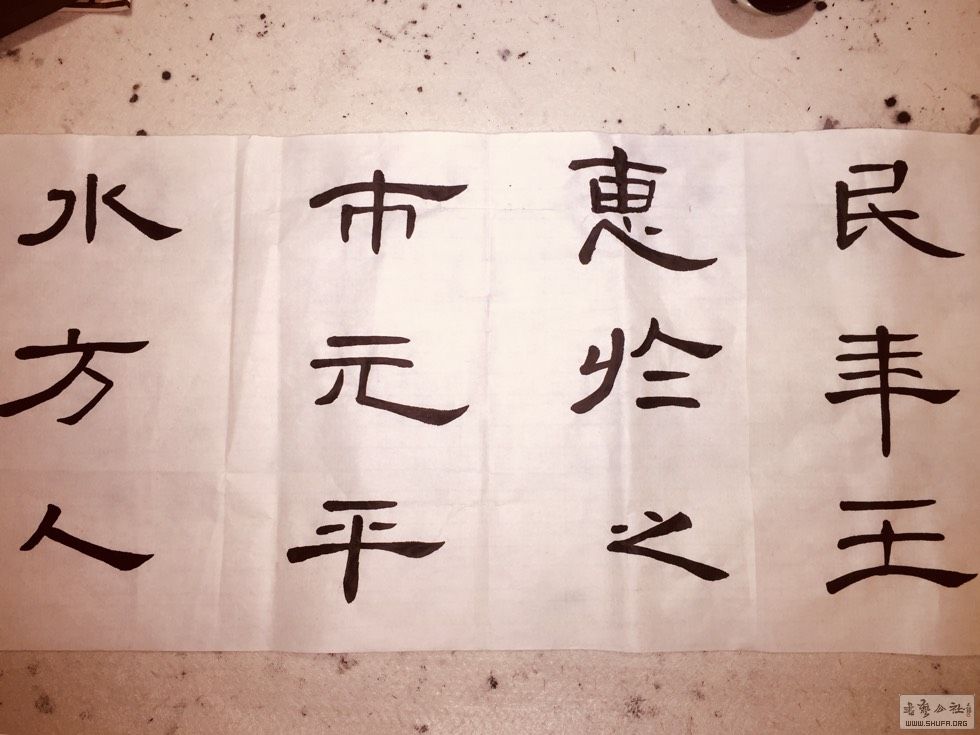 民年王
惠於之
市元平
水方人
書藝公社
WWW.SHUFA.ORG